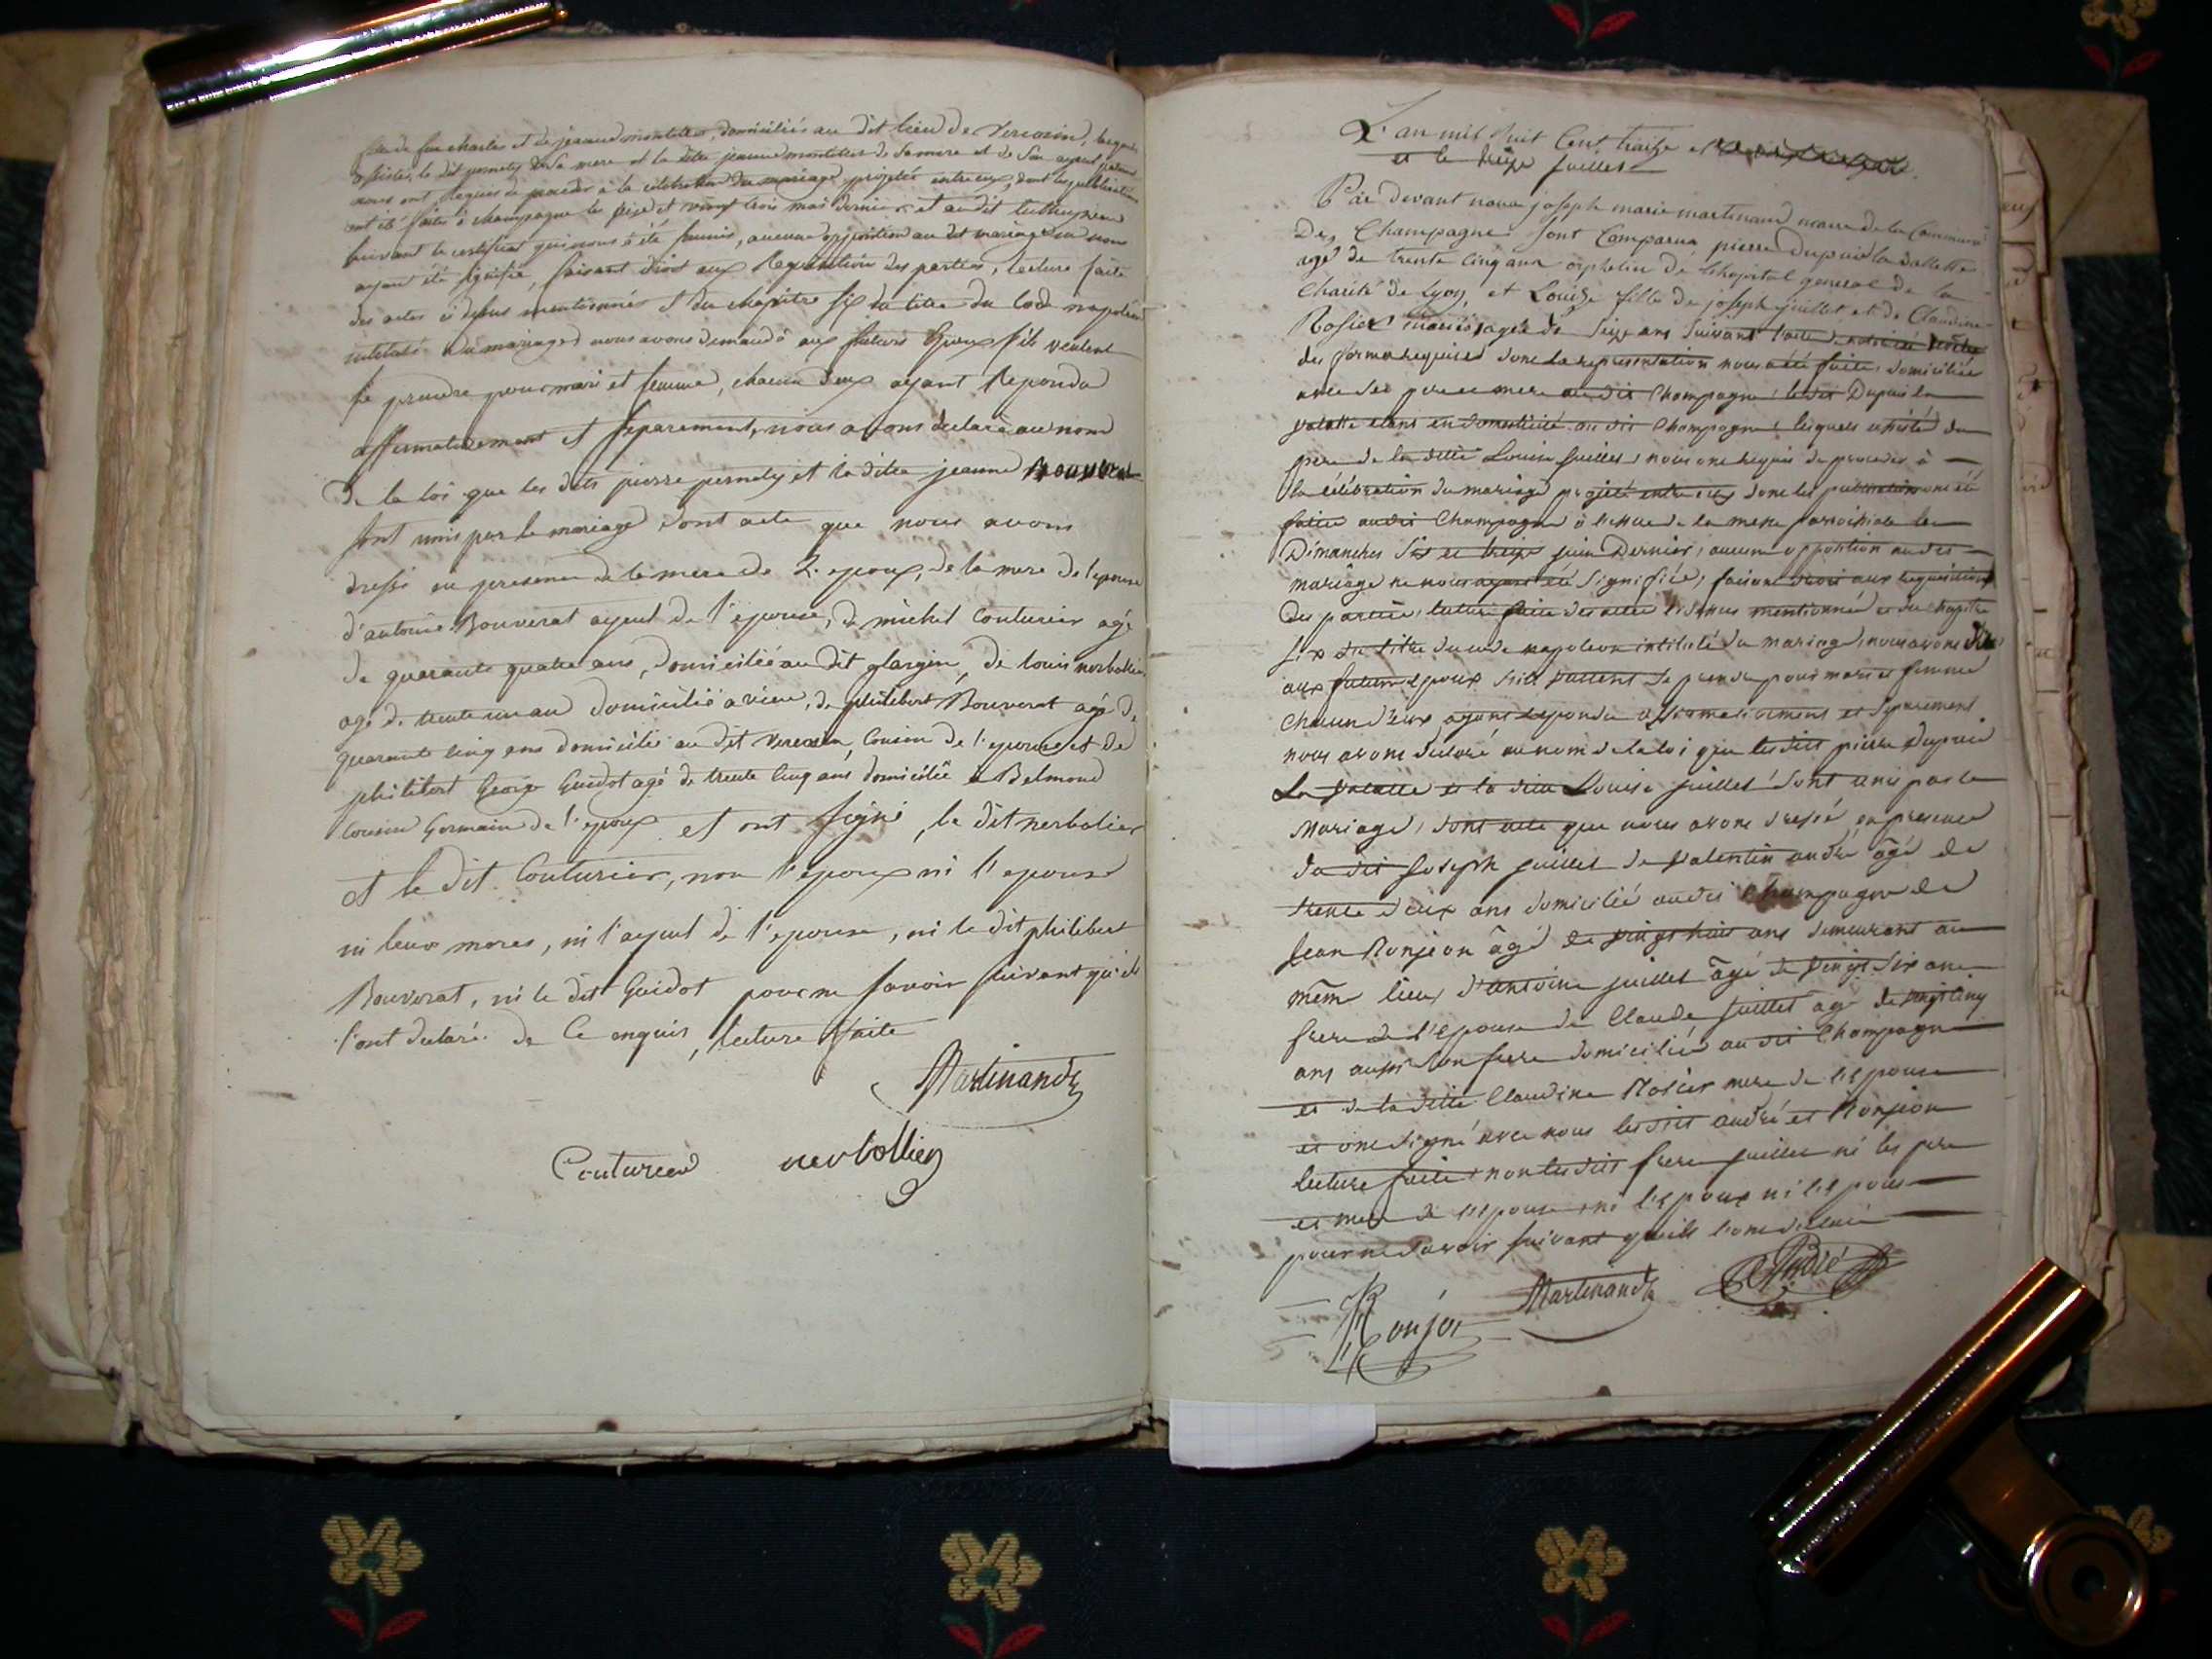 fille de feu charles et de jeanne montillet, domiciliés au dit lieu de Vercosin, lesquels
assistés, le dit pernety de Sa mere et la dite jeanne montillet de Sa mere et de Son ayeul
nous ont Requis de proceder a la celebration du mariage projetté entre eux, dont les publications
ont été faites à champagne les seize et vingt trois mai dernier et au dit
suivant le certificat qui nous à été fournis, aucune opposition au dit mariage ne nous
ayant été signifiée, faisant droit aux Requisition des parties, lecture faite
des actes ci dessus mentionnés et du chapitre six du titre du Code napoléon
intitulé du mariage nous avons demandé aux futurs Epoux s'ils veulent
se prendre pour mari et femme, chacun deux ayant Repondu
affirmativement et separement, nous avons declaré au nom
de la loi que les dits pierre pernety et la dite jeanne Bouverat
sont unis par le mariage dont acte que nous avons
dressé en presence de la mere de L'epoux, de la mere de l'epouse
d'antoine Bouverat ayeul de l'epouse, de michel Couturier agé
de quarante quatre ans, domicilié au dit glargin, de louis nerbollier
agé de trente un an domicilié a vieu, de philibert Bouverat agé de
quarante cinq ans domicilié au dit Vercosin, Cousin de l'epouse et de
philibert George Guidot agé de trente cinq ans domicilié à Belmond
Cousin Germain de l'epoux et ont signé, le dit nerbolier
et le dit Couturier, non l'epoux ni l'epouse
ni leurs meres, ni l'ayeul de l'epouse, ni le dit philibert
Bouverat, ni le dit Guidot pour ne savoir suivant qu'ils
l'ont declaré de Ce enquis, lecture faite
Martinand
Couturier nerbollier
L'an mil huit Cent treize
et le treize juillet
Par devant nous joseph marie martinand maire de la Commune
De Champagne Sont Comparus pierre Dupuis la vallette
agé de trente cinq ans orphelin de l'hopital general de la
Charité de Lyon, et Louise fille de joseph juillet et de Claudine
Rosier mariés agée de seize ans suivant
des formes requises dont la representation nous a été faite, domiciliée
avec ses pere et mere au dit Champagne, le dit Dupuis la
valette etant en domesticité au dit Champagne, lesquels assisté du
pere de la ditte Louise juillet, nous ont requis de proceder à
la célébration du mariage projeté entre eux dont les publications ont été
faites audit Champagne à l'issue de la messe paroissiale les
Dimanches Six et treize juin Dernier, aucune opposition au dit
mariage ne nous ayant été Signifiée, faisant droit aux requisitions
des parties, lecture faite des actes ci dessus mentionnés et du chapitre
six du titre du code napoleon intitulé du mariage, nous avons dit
aux futurs epoux s'ils veulent se prendre pour mari et femme
Chacun d'eux ayant repondu affirmativement et Separement
nous avons declaré au nom de la loi que les dits pierre Dupuis
La valette et la dite Louise juillet Sont unis par le
Mariage, dont acte que nous avons dressé en presence
du dit joseph juillet de valentin andré âgé de
trente deux ans domicilié audit Champagne de
jean Ronjeon âgé de vingt huit ans demeurant au
même lieu, d'antoine juillet âgé de vingt Six ans
frere de l'epouse de Claude juillet agé de vingt cinq
ans aussi Son frere domicilié au dit Champagne
et de la ditte Claudine Rosier mere de l'epouse
et ont signé avec nous les dits andré et Ronjeon
lecture faite, non les dits frere juillet ni les pere
et mere de l'epouse, ni l'epoux ni l'epouse
pour ne Savoir suivant qu'ils l'ont declaré
Ronjon Martinand André